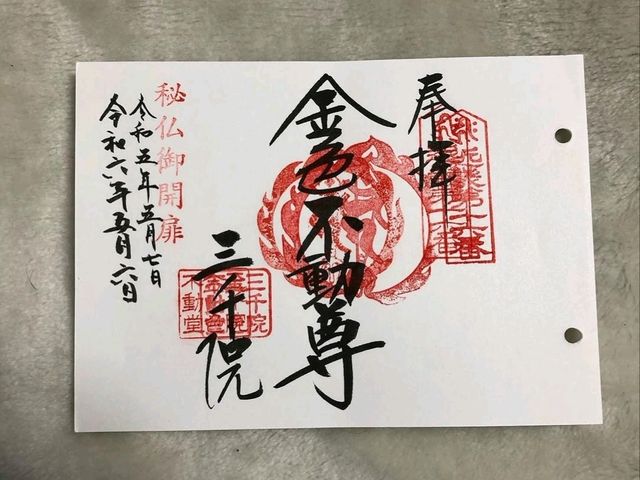 奉拝
金色不動尊
三千院
三千院
金色
不動堂
秘仏御開扉
令和五年五月七日
令和六年五月六日